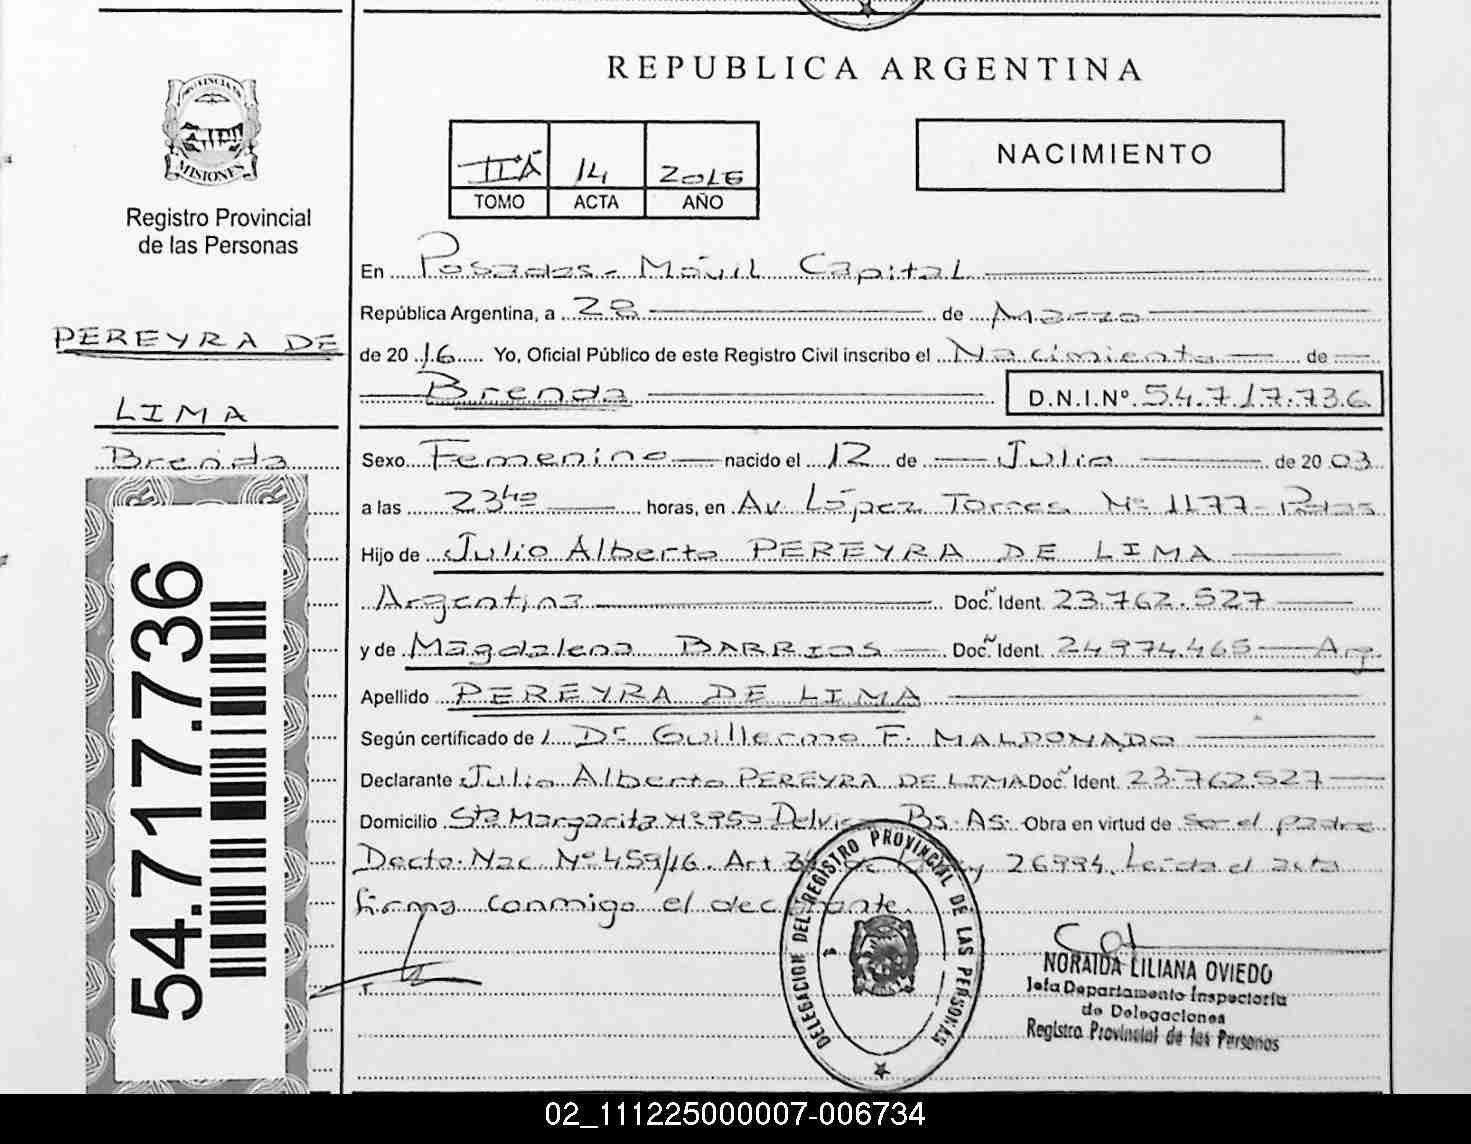 REPUBLICA ARGENTINA
PROVINCIA DE
MISIONES
Registro Provincial
de las Personas
IIA 14 2016
TOMO ACTA AÑO
NACIMIENTO
En Posadas - Móvil Capital
República Argentina, a 28 de Marzo
de 2016 Yo, Oficial Público de este Registro Civil inscribo el Nacimiento de
Brenda D.N.I.Nº 54.717.736
PEREYRA DE
LIMA
Brenda
54.717.736
Sexo Femenino nacido el 12 de Julio de 2003
a las 23 40 horas, en Av. López Torres Nº 1177 - Pdas
Hijo de Julio Alberto PEREYRA DE LIMA
Argentina Doc. Ident. 23.762.527
y de Magdalena BARRIOS Doc. Ident. 24.974.465 Arg.
Apellido PEREYRA DE LIMA
Según certificado de Dr Guillermo F. MALDONADO
Declarante Julio Alberto PEREYRA DE LIMA Doc. Ident. 23.762.527
Domicilio Sta Margarita Bs. As. Obra en virtud de ser el padre
Decto. Nac. Nº 459/16. Art. 26994. Leída el acta
firma conmigo el declarante.
DELEGACION DEL REGISTRO PROVINCIAL DE LAS PERSONAS
NORAIDA LILIANA OVIEDO
Jefa Departamento Inspectoria
de Delegaciones
Registro Provincial de las Personas
02_111225000007-006734